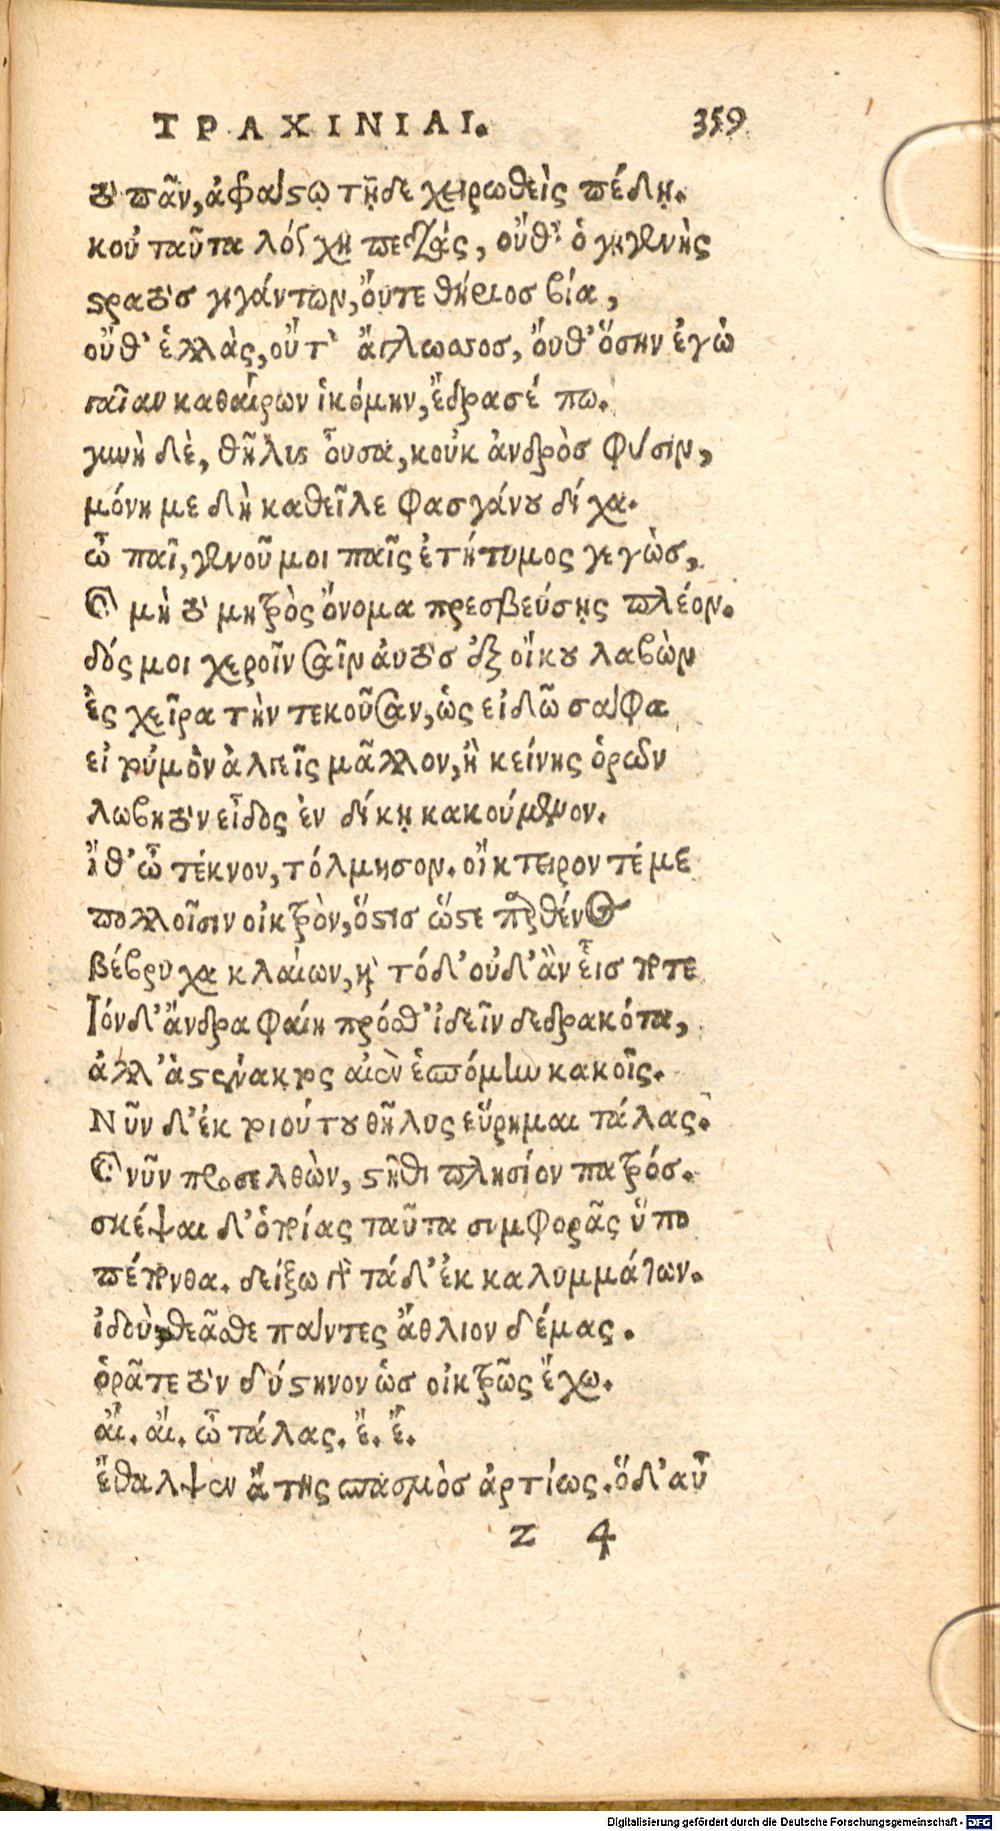 ΤΡΑΧΙΝΙΑΙ. 359
τὸ πᾶν, ἀφράστῳ τῇδε χειρωθεὶς πέδῃ.
κοὐ ταῦτα λόγχη πεδιὰς, οὔθ' ὁ γηγενὴς
στρατὸς γιγάντων, ὄυτε θήρειος βία,
οὔθ' ἑλλὰς, οὔτ' ἄγλωσσος, ὄυθ' ὅσην ἐγὼ
γαῖαν καθαίρων ἱκόμην, ἔδρασέ πω.
γυνὴ δὲ, θῆλυς οὖσα, κοὐκ ἀνδρὸς φύσιν,
μόνη με δὴ καθεῖλε φασγάνου δίχα.
ὦ παῖ, γενοῦ μοι παῖς ἐτήτυμος γεγὼς,
καὶ μὴ τὸ μητρὸς ὄνομα πρεσβεύσῃς πλέον.
δός μοι χεροῖν σαῖν ἀυτὸς ἐξ οἴκου λαβὼν
ἐς χεῖρα τὴν τεκοῦσαν, ὡς εἰδῶ σάφα
εἰ τοὐμὸν ἀλγεῖς μᾶλλον, ἢ κείνης ὁρῶν
λωβητὸν εἶδος ἐν δίκῃ κακούμενον.
ἴθ' ὦ τέκνον, τόλμησον. οἴκτειρον τέ με
πολλοῖσιν οἰκτρὸν, ὅστις ὥστε παρθένος
βέβρυχα κλαίων, καὶ τόδ' οὐδ' ἂν εἷς ποτε
Τόνδ' ἄνδρα φαίη πρόσθ' ἰδεῖν δεδρακότα,
ἀλλ' ἀστένακτος αἰὲν ἑσπόμην κακοῖς.
Νῦν δ' ἐκ τοιούτου θῆλυς εὕρημαι τάλας.
καὶ νῦν προσελθὼν, στῆθι πλησίον πατρός.
σκέψαι δ' ὁποίας ταῦτα συμφορᾶς ὕπο
πέπονθα. δείξω γὰρ τάδ' ἐκ καλυμμάτων.
ἰδοὺ, θεᾶσθε πάντες ἄθλιον δέμας.
ὁρᾶτε τὸν δύστηνον ὡς οἰκτρῶς ἔχω.
αἴ. αἴ. ὦ τάλας. ἔ. ἔ.
ἔθαλψεν ἄτης σπασμὸς ἀρτίως. ὅδ' αὖ
Z 4
Digitalisierung gefördert durch die Deutsche Forschungsgemeinschaft - DFG